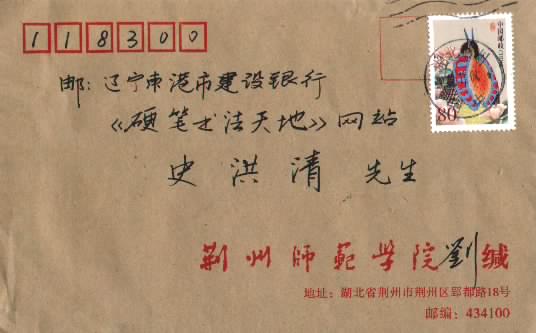 118300
中国邮政
80
邮:辽宁东港市建设银行
《硬笔书法天地》网站
史洪清 先生
荆州师範学院劉缄
地址:湖北省荆州市荆州区郢都路18号
邮编:434100